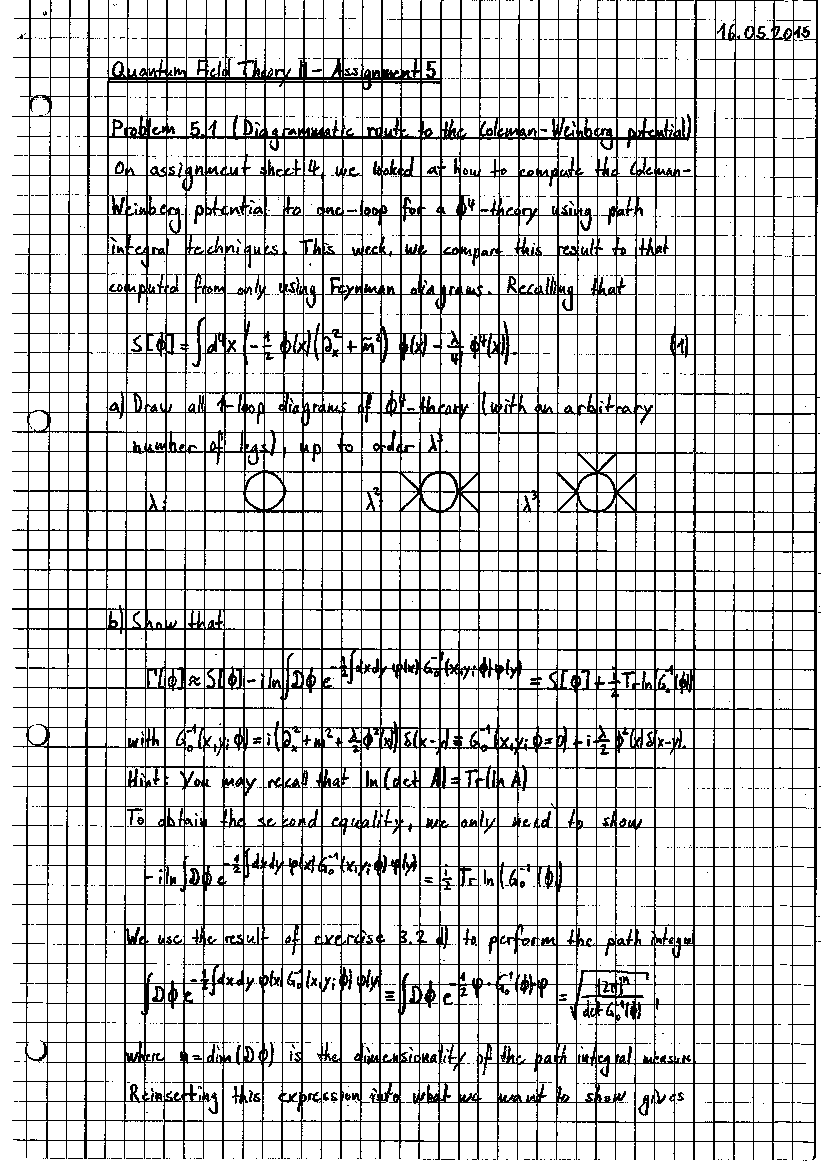 16.05.2015
Quantum Field Theory II - Assignment 5
Problem 5.1 (Diagrammatic route to the Coleman-Weinberg potential)
On assignment sheet 4, we looked at how to compute the Coleman-
Weinberg potential to one-loop for a ϕ⁴-theory using path
integral techniques. This week, we compare this result to that
computed from only using Feynman diagrams. Recalling that
S[ϕ] = ∫d⁴x (-½ ϕ(x)(∂ₓ² + m²) ϕ(x) - λ/4! ϕ⁴(x)). (1)
a) Draw all 1-loop diagrams of ϕ⁴-theory (with an arbitrary
number of legs), up to order λ³.
λ: λ²: λ³:
b) Show that
Γ[ϕ] ≈ S[ϕ] - i ln ∫Dϕ e^{-½∫dxdy φ(x) G₀⁻¹(x,y;ϕ) φ(y)} = S[ϕ] + i/2 Tr ln(G₀⁻¹(ϕ))
with G₀⁻¹(x,y;ϕ) = i(∂ₓ² + m² + λ/2 ϕ²(x)) δ(x-y) ≡ G₀⁻¹(x,y;ϕ=0) + i λ/2 ϕ²(x) δ(x-y).
Hint: You may recall that ln(det A) = Tr(ln A)
To obtain the second equality, we only need to show
-i ln ∫Dϕ e^{-½∫dxdy φ(x) G₀⁻¹(x,y;ϕ) φ(y)} = i/2 Tr ln(G₀⁻¹(ϕ))
We use the result of exercise 3.2 d) to perform the path integral
∫Dϕ e^{-½∫dxdy φ(x) G₀⁻¹(x,y;ϕ) φ(y)} ≡ ∫Dϕ e^{-½ φ·G₀⁻¹(ϕ)·φ} = √((2π)ⁿ / det G₀⁻¹(ϕ)),
where n = dim(Dϕ) is the dimensionality of the path integral measure.
Reinserting this expression into what we want to show gives